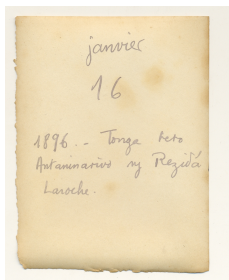 janvier
16
1896.- Tonga teto
Antaninarivo ny Rezidà
Laroche.